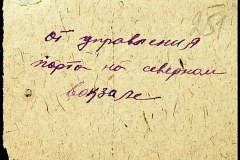 от управления
порта на северном
вокзале